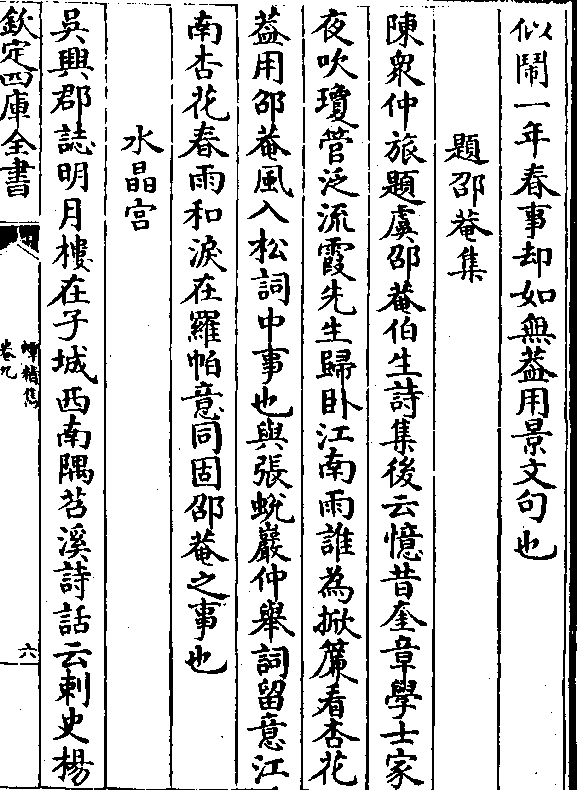 似鬧一年春事却如無葢用景文句也
題邵菴集
陳衆仲旅題虞邵菴伯生詩集後云憶昔奎章學士家
夜吹瓊管泛流霞先生歸卧江南雨誰為掀簾看杏花
葢用邵菴風入松詞中事也與張蛻巖仲舉詞留意江
南杏花春雨和淚在羅帕意同固邵菴之事也
水晶宫
吳興郡誌明月樓在子城西南隅苕溪詩話云刺史楊
欽定四庫全書
蟫精雋
卷九
六